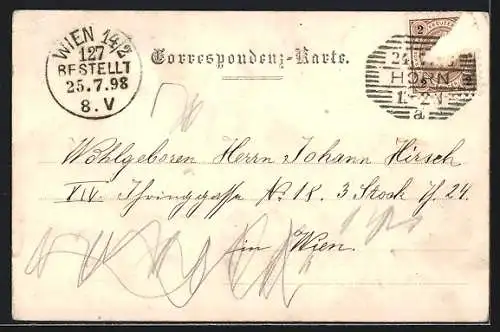 WIEN 14/2
127
BESTELLT
25.7.98
8.V
Correspondenz-Karte.
2
24
HORN
1-2N
a
Wohlgeboren Herrn Johann Hirsch
XIV. Ihringgasse № 18. 3 Stock Th. 24.
in Wien.